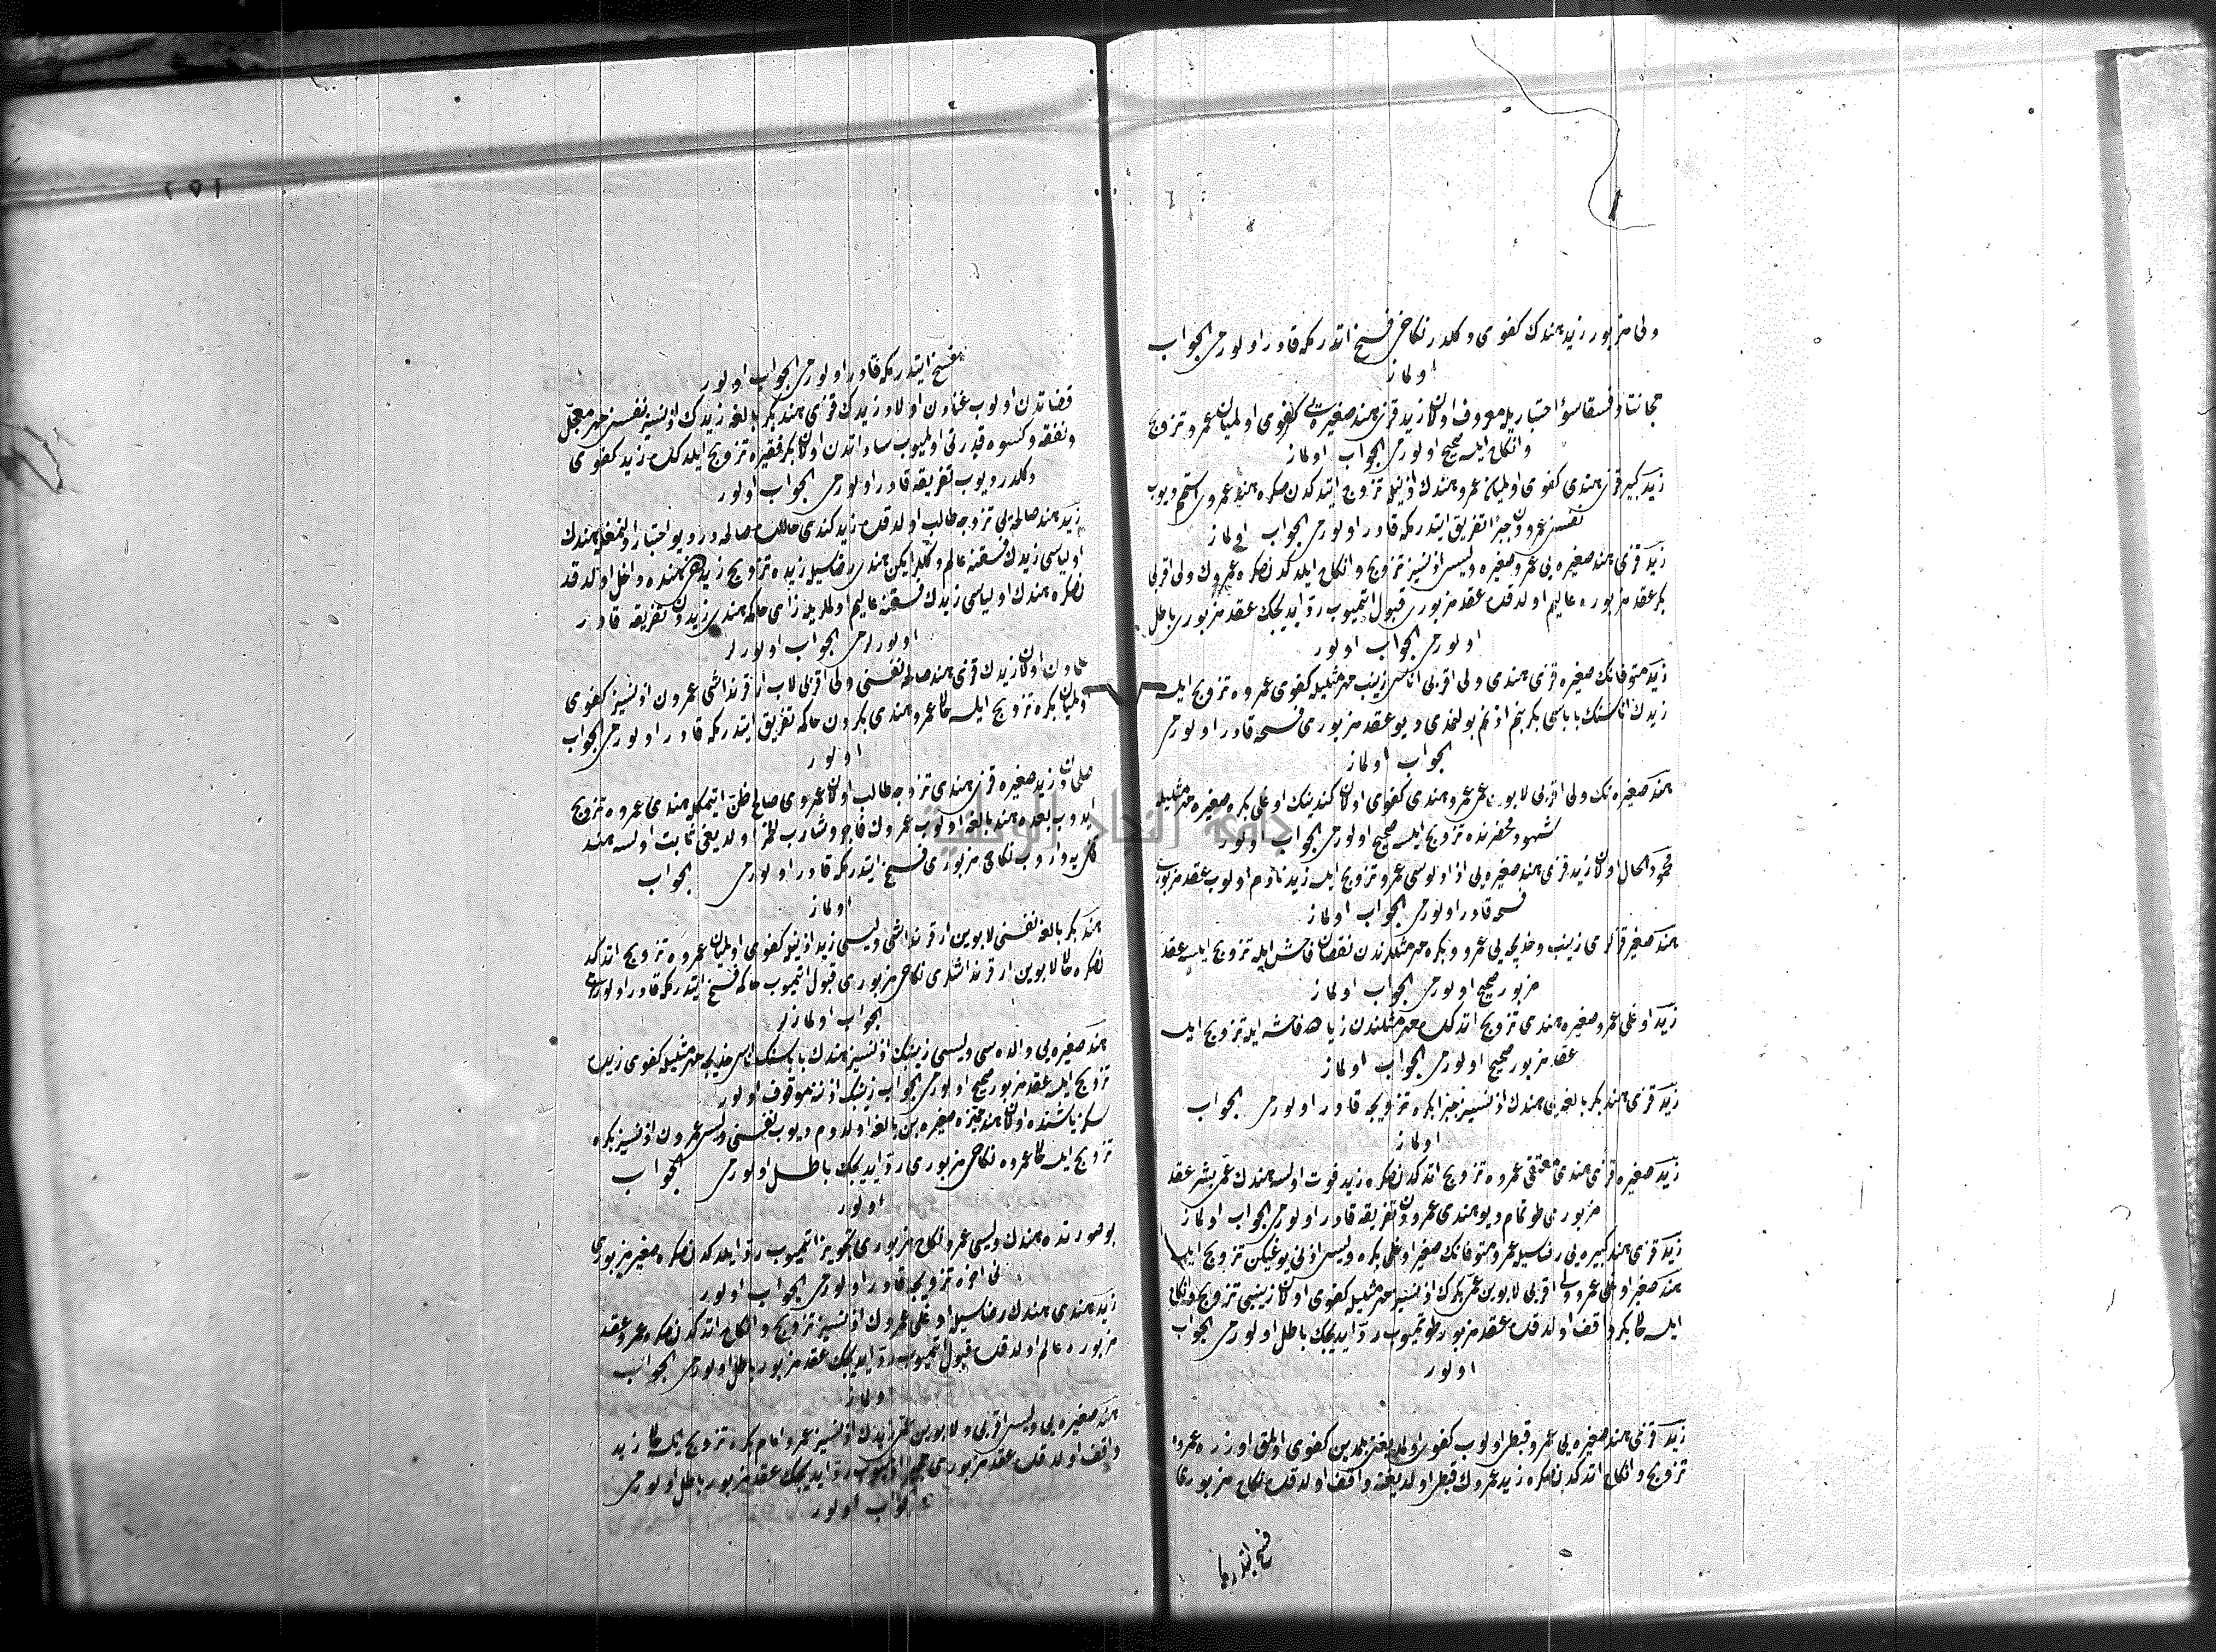 ولی مزبور زید هندك كفوی دكلدر نكاحی فسخ اتدرمكه قادر اولورمی الجواب
اولماز
زید قزی هند صغیره یی كفوی اولمیان عمرو تزویج
وانكاح ایلسه صحیح اولورمی الجواب اولماز
زید كبیره قزی هندی كفوی اولمیان عمرو هندك اذنیله تزویج ایتدكدن صكره هند عمروی دیوب
نفسنی عمرودن جبرا تفریق ایتدرمكه قادر اولورمی الجواب اولماز
زید قزی هند صغیره یی عمرو صغیره ولیسی اذنسز تزویج وانكاح ایلدكدنصكره عمروك ولی اقربی
بكر عقد مزبوره عالم اولدقده عقد مزبوری قبول اتمیوب رد ایدیجك عقد مزبور باطل
اولورمی الجواب اولور
زید متوفانك صغیره قزی هندی ولی اقربی اناسی زینب مهر مثلیله كفوی عمروه تزویج ایلسه
زیدك اناسنك باباسی بكر بنم اذنم بولنمدی دیو عقد مزبوری فسخه قادر اولورمی
الجواب اولماز
هند صغیره نك ولی اقربی لابوین عمی عمرو هندی كفوی اولان كندینك اوغلی بكر صغیره مهر مثلیله
شهود محضرنده تزویج ایلسه صحیح اولورمی الجواب اولور
اولان زید قزی هند صغیره یی عمرو تزویج ایلسه زید نادم اولوب عقد مزبوری
فسخه قادر اولورمی الجواب اولماز
هند صغیر قزلری زینب وخدیجه یی عمرو وبكره مهر مثللرندن نقصان فاحش ایله تزویج ایلسه عقد
مزبور صحیح اولورمی الجواب اولماز
زید اوغلی عمرو صغیره هندی تزویج اتدكده مهر مثلندن زیاده فاحشه ایله تزویج ایلسه
عقد مزبور صحیح اولورمی الجواب اولماز
زید قزی هند بكر بالغه یی هندك اذنسز جبرا بكره تزویجه قادر اولورمی الجواب
اولماز
زید صغیره قزی هندی معتقی عمروه تزویج اتدكدنصكره زید فوت اولسه هندك عمی بشر عقد
مزبوری طوتمام دیو هندی عمرودن تفریقه قادر اولورمی الجواب اولماز
زید قزی هند كبیره یی رضاسیله عمرو متوفانك صغیر اوغلی بكره ولیسی اذنی یوغیكن تزویج ایلسه
هند صغیر اوغلی عمرو ولی اقربی لابوین عمی بكرك اذنسز مهر مثلیله كفوی اولان زینبی تزویج وانكاح
ایلسه حالا بكر واقف اولدقده عقد مزبور طوتمیوب رد ایدیجك باطل اولورمی الجواب
اولور
زید قزی هند صغیره یی عمرو قبطی اولوب كفوی اولمدیغنی بلمدین كفوی اولمق اوزره عمروه
تزویج وانكاح اتدكدنصكره زید عمروك قبطی اولدیغنه واقف اولدقده نكاح مزبوری
فسخ ایتدرمكه
فسخ ایتدرمكه قادر اولورمی الجواب اولور
قضاتدن اولوب اولان زیدك قزی هند بكر بالغه زیدك اذنسز نفسنی مهر معجل
ونفقه وكسوه قدرتی اولمیوب اولان بكر فقیره تزویج ایلدكده زید كفوی
دكلدر دیوب تفریقه قادر اولورمی الجواب اولور
زید هند صالحه یی تزوجه طالب اولدقده زید كندی حالك صالحدر دیو اولنمغله هندك
اولیاسی زیدك فسقنه عالم دكللر ایكن هندی رضاسیله زیده تزویج زید هنده داخل اولدقد
نصكره هندك اولیاسی زیدك فسقنه عالم اولملریله رأی حاكمله هندی زیددن تفریقه قادر
اولورلرمی الجواب اولورلر
اولان زیدك قزی هند صالحه نفسنی ولی اقربی لاب ار قرنداشی عمرون اذنسز كفوی
اولمیان بكره تزویج ایلسه حالا عمرو هندی بكردن حاكمه تفریق ایتدرمكه قادر اولورمی الجواب
اولور
زید صغیره قزی هندی تزوجه طالب اولان عمروی صالح ظن ایتمكله هندی عمروه تزویج
ایدوب بعده هند بالغه اولوب عمروك فاجر وشارب خمر اولدیغی ثابت اولسه هند
واروب نكاح مزبوری فسخ ایتدرمكه قادر اولورمی الجواب
اولماز
هند بكر بالغه نفسنی لابوین ار قرنداشی ولیسی زید اذنیله كفوی اولمیان عمروه تزویج اتدكد
نصكره حالا لابوین ار قرنداشلری نكاح مزبوری قبول اتمیوب حاكمه فسخ ایتدرمكه قادر اولورلرمی
الجواب اولمازلر
هند صغیره یی والده سی ولیسی زینبك اذنسز هندك باباسنك اناسی خدیجه مهر مثلیله كفوی زیده
تزویج ایلسه عقد مزبور صحیح اولورمی الجواب زینبك اذننه موقوف اولور
سكز یاشنده اولان هند صغیره بن بالغه اولدوم دیوب نفسنی ولیسی عمرون اذنسز بكره
تزویج ایلسه حالا عمروه نكاح مزبوری رد ایدیجك باطل اولورمی الجواب
اولور
بو صورتده هندك ولیسی عمرو نكاح مزبوری تجویز اتمیوب رد ایلدكدنصكره صغیره مزبوره یی
اخره تزویجه قادر اولورمی الجواب اولور
زید هندی هندك رضاسیله اوغلی عمروك اذنسز تزویج وانكاح اتدكدنصكره عمرو عقد
مزبوره عالم اولدقده قبول اتمیوب رد ایدیجك عقد مزبور باطل اولورمی الجواب
اولماز
هند صغیره یی ولیسی اقربی ولابوین عمی زیدك اذنسز عمرو امام بكره تزویج ایلسه حالا زید
واقف اولدقده عقد مزبوری اتمیوب رد ایدیجك عقد مزبور باطل اولورمی
الجواب اولور